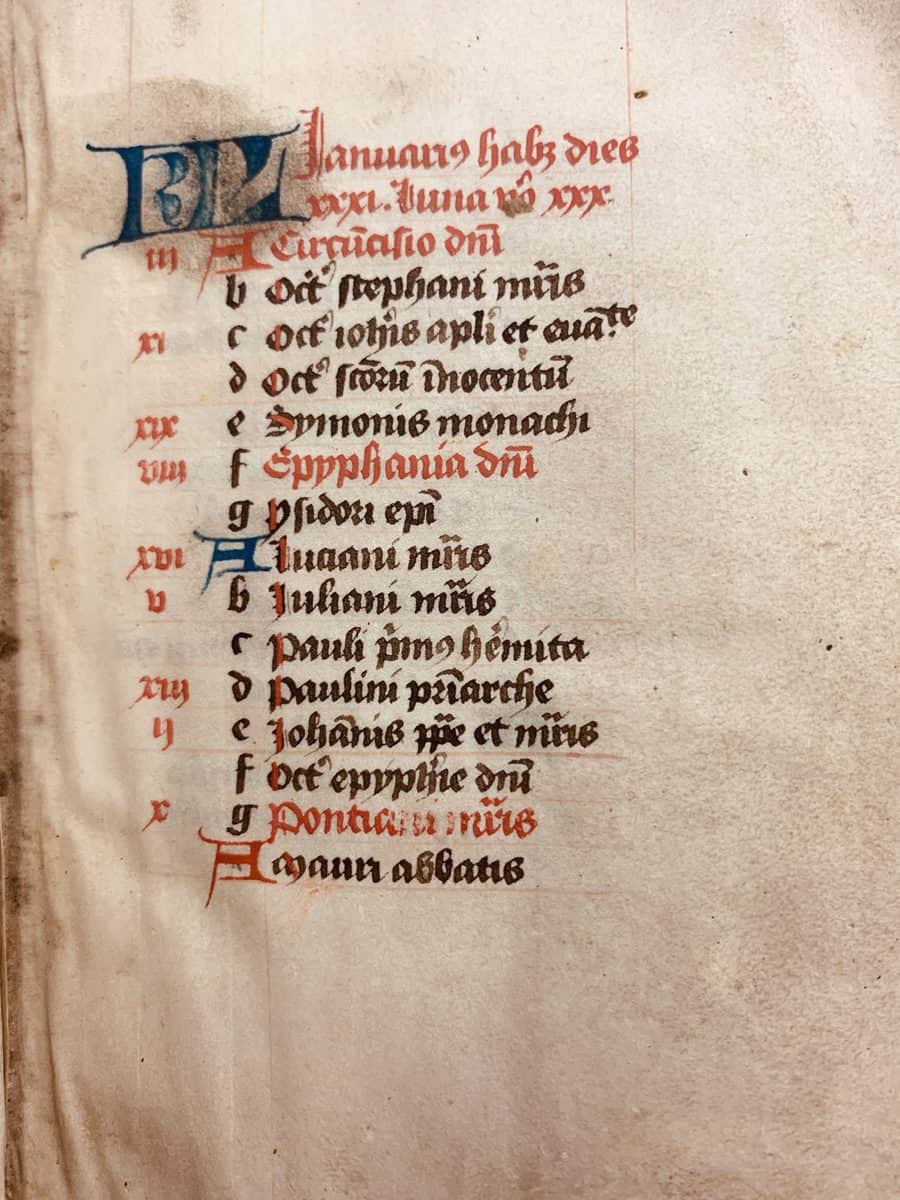 KL Januariꝰ habꝫ dies
xxxi. Luna vo᷑ xxx.
iii A Circu̅cisio dn̅i
b Oct᷑ stephani mr̅is
xi c Oct᷑ ioh̅is apl̅i et eua̅.te
d Oct᷑ sc̅oru̅ i̅nocentu̅
xix e Symonis monachi
viii f Epyphania dn̅i
g ysidori ep̅i
xvi A luciani mr̅is
v b Juliani mr̅is
c Pauli p̅mꝰ he̅mita
xiii d Paulini pr̅iarche
ii e Joha̅nis pp̅e et mr̅is
f Oct᷑ epyph̅ie dn̅i
x g Pontiani mr̅is
A Mauri abbatis